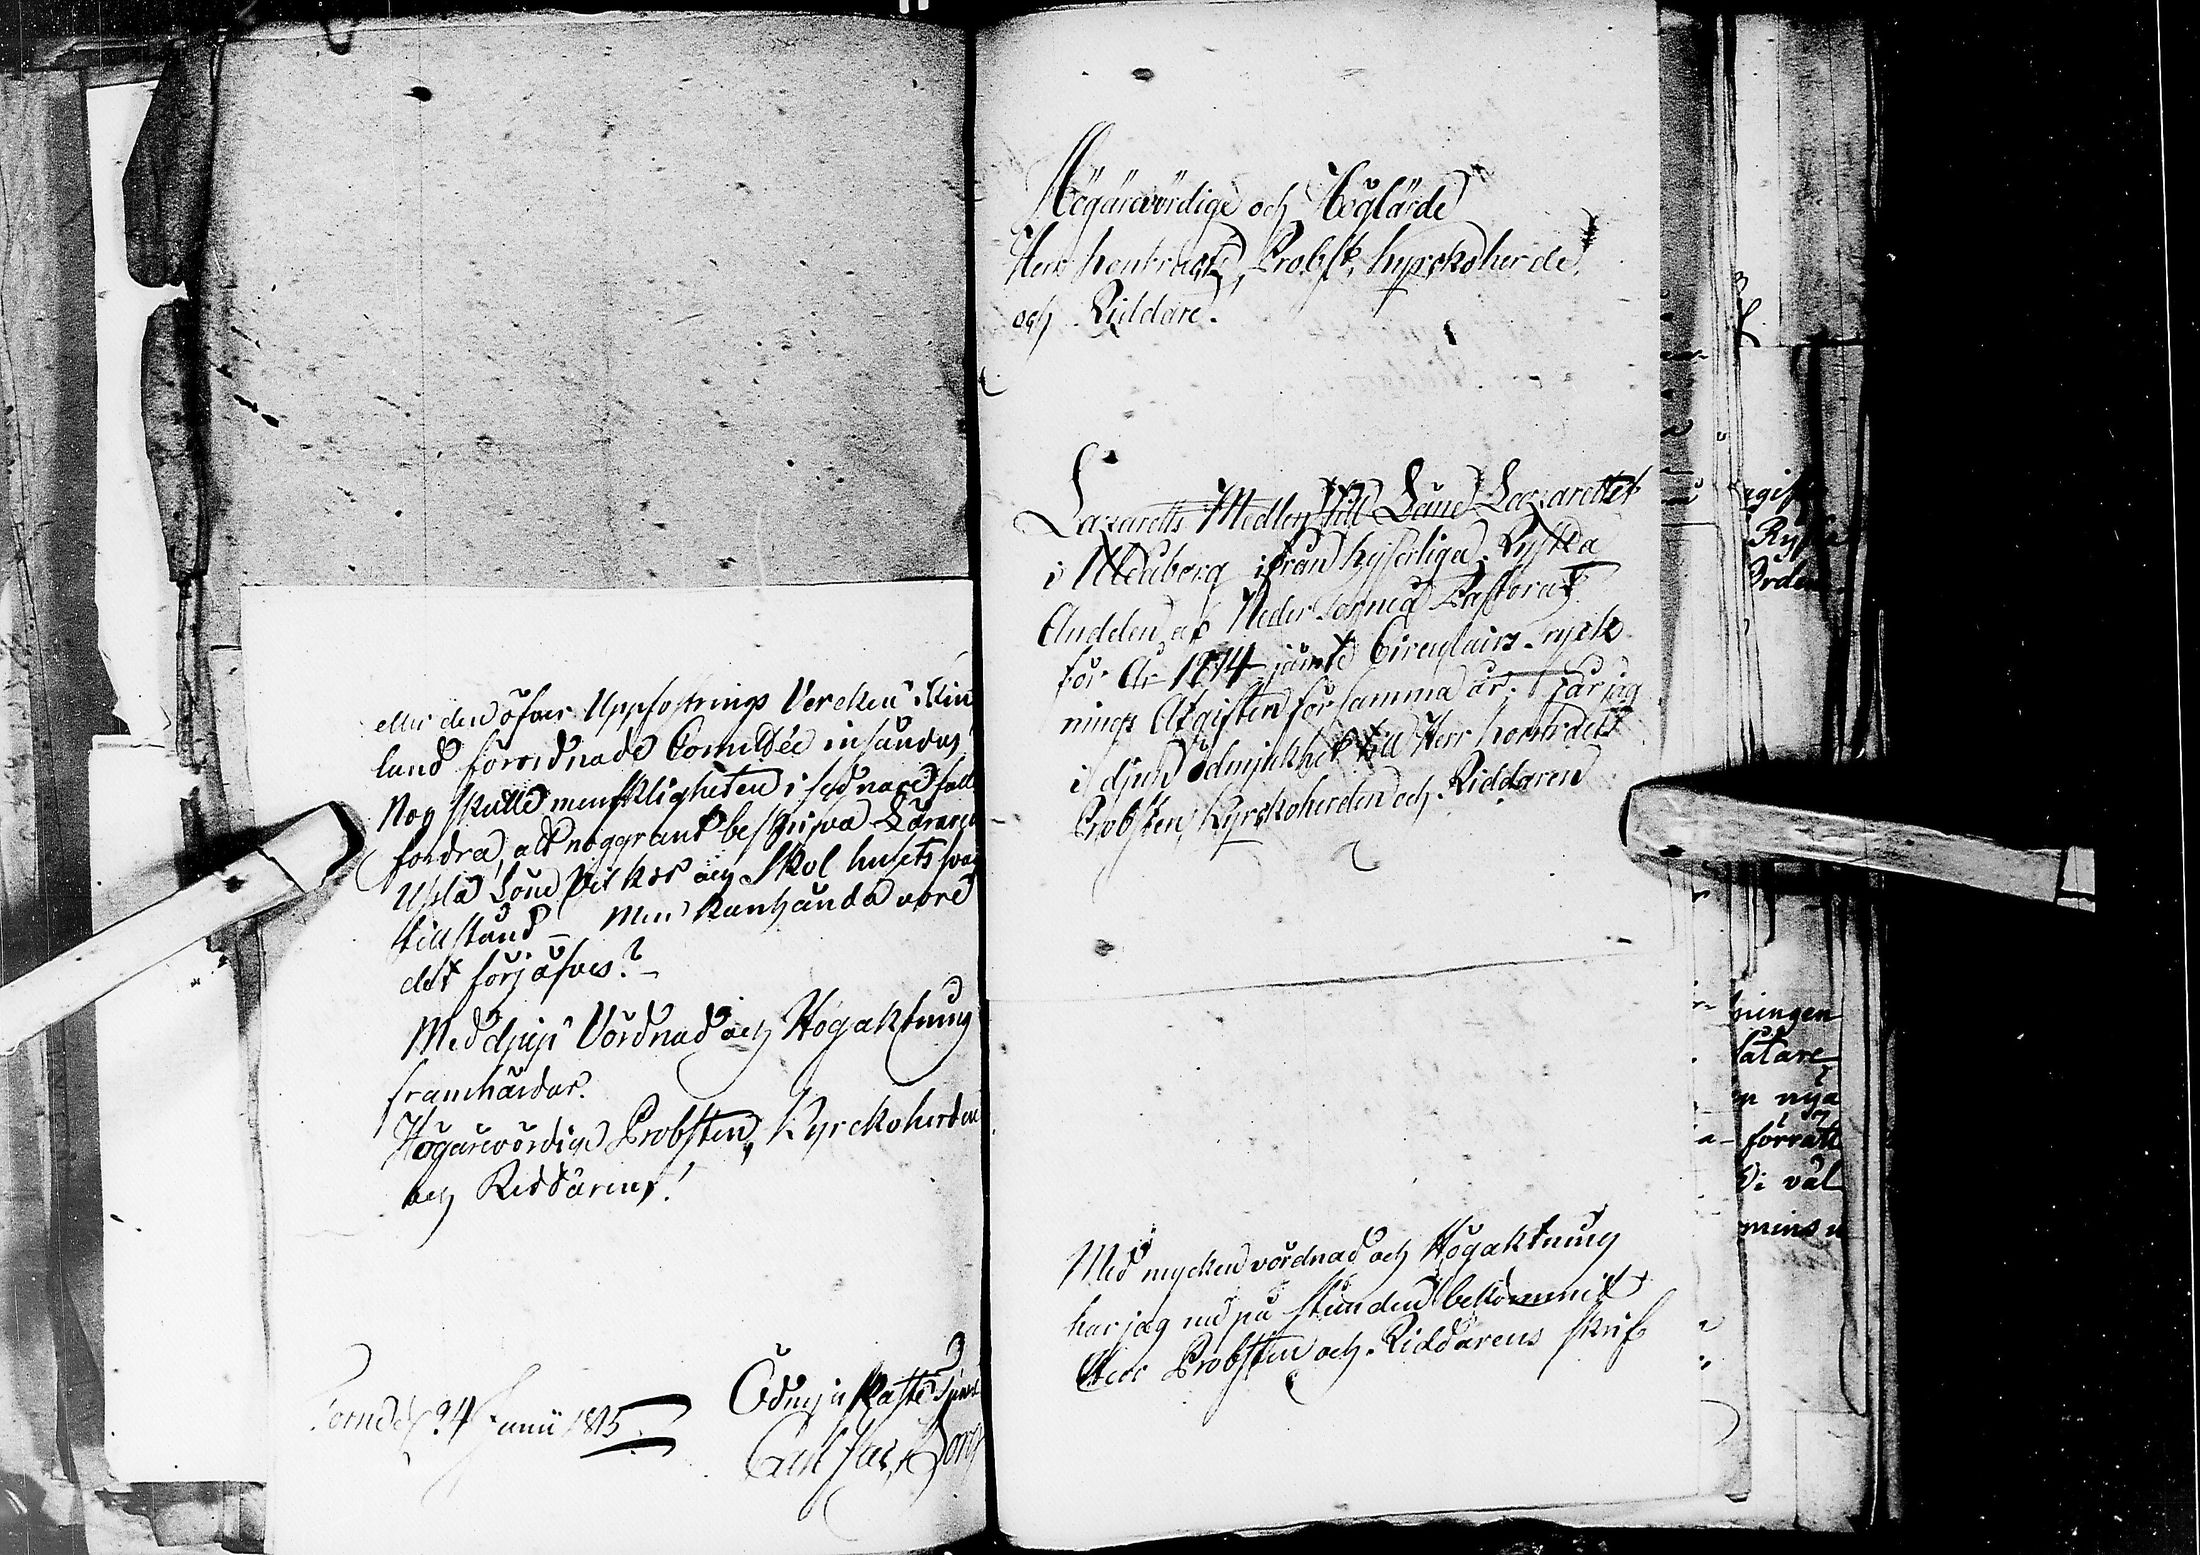 eller den öfver Uppfostrings Verken i Fin
land förordnade Comitée insändas
Nog skulle menskligheten i sednare fall
fordra, att noggrant beskrifva Lärarens
Usla Löne vilkor och Skol husets
tillstånd – Men kanhända vore
det förjäfves? –
Med djup Vördnad och Högaktning
framhärdar.
Högärevördige Probsten, Kyrckoherden
och Riddarens!
Torneå d. 24 Junii 1815
Ödmjukaste tjena
Carl
Högärevördige och Höglärde
Herr Contracts Probst, Kyrckoherde,
och Riddare.
Lazaretts Medlen till Läne Lazarettet
i Uleåborg ifrån Kejserliga Ryska
Andelen af Neder Torneå Pastorat
för År 1814 jämte Circulairs Tryck
nings Afgiften för samma år, får jag
i djup ödmjukhet till Herr Contracts
Probsten, Kyrckoherden och Riddaren
Med mycken vördnad och Högaktning
har jag nu på stunden bekommit
Herr Probsten och Riddarens skrif
Ryska
Orden
ningen
låtare
nya
förrätt
Di väl